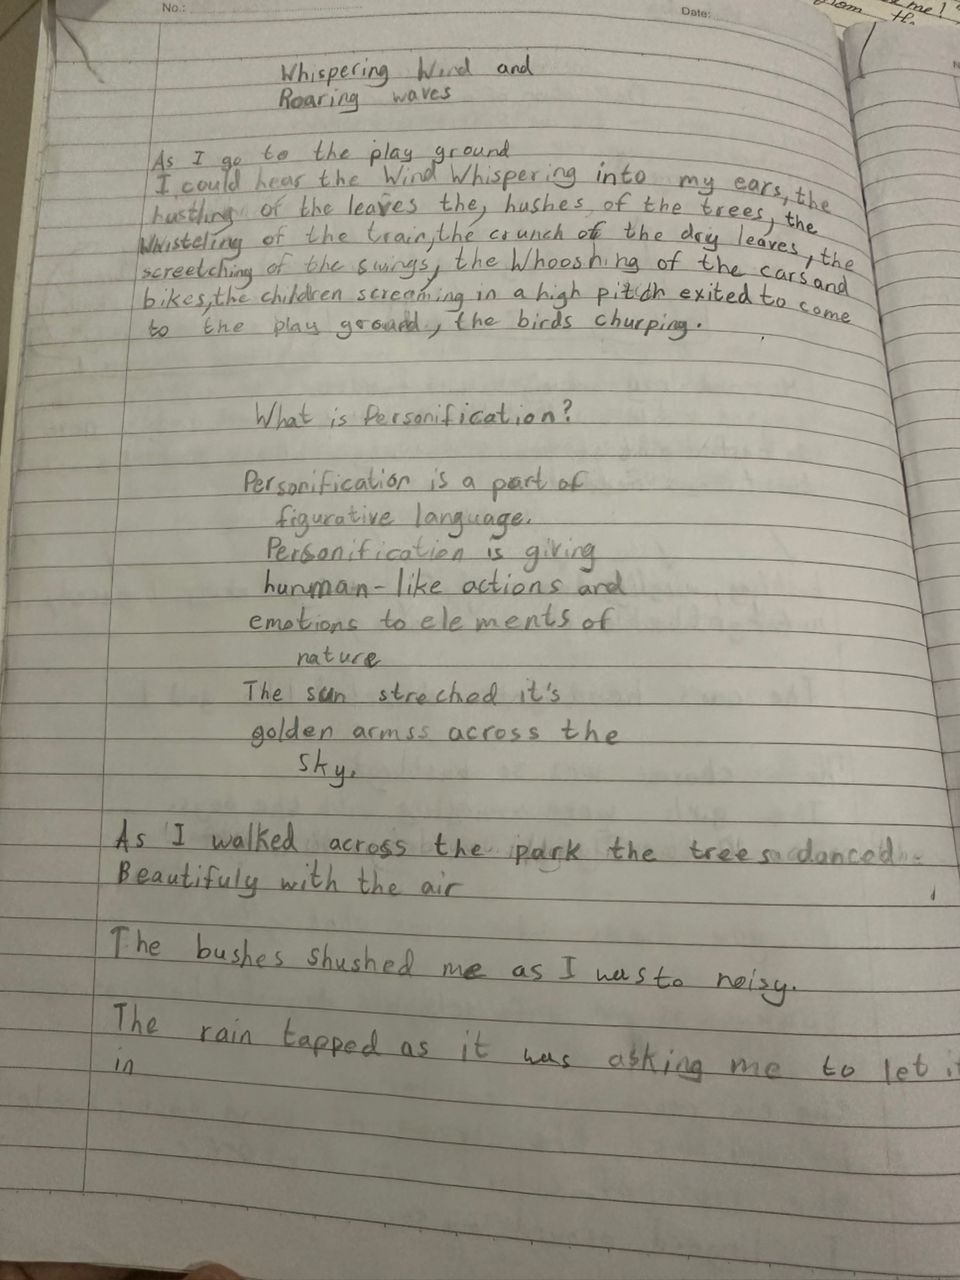 No.:
Date:
me!
Whispering Wind and
Roaring waves
As I go to the play ground
I could hear the Wind Whispering into my ears, the
hustling of the leaves the, hushes of the trees, the
Whisteling of the train, the crunch of the dry leaves, the
screetching of the swings, the Whooshing of the cars and
bikes, the children screaming in a high pitch exited to come
to the play ground, the birds churping.
What is Personification?
Personification is a part of
figurative language.
Personification is giving
hunman-like actions and
emotions to elements of
nature
The sun streched it's
golden armss across the
sky.
As I walked across the park the trees danced
Beautifuly with the air
The bushes shushed me as I was to noisy.
The rain tapped as it was asking me to let it
in